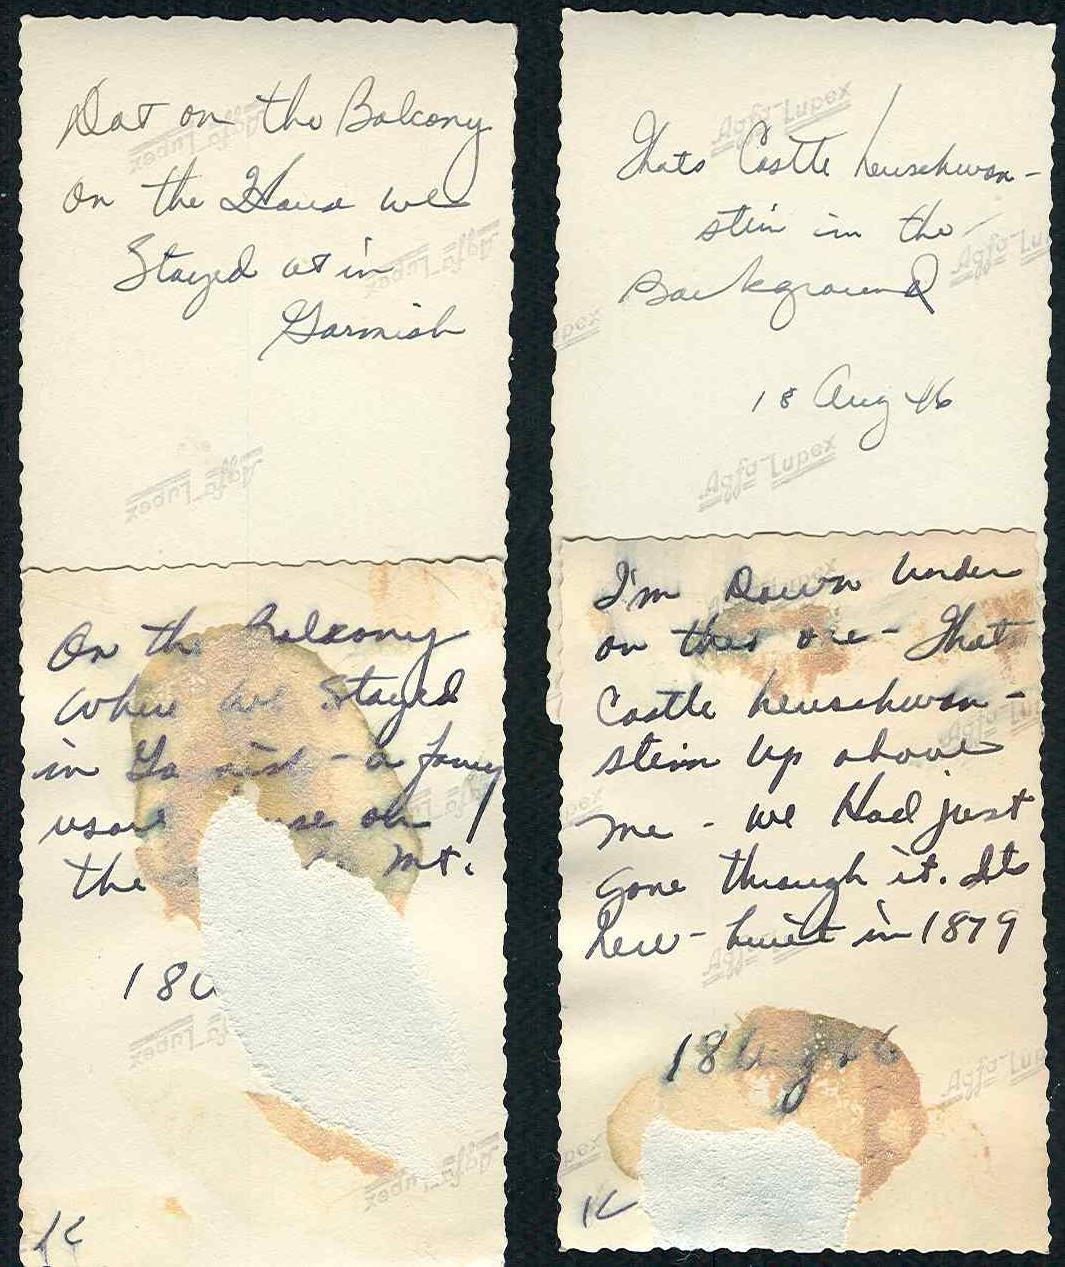 Dat on the Balcony
on the Haus we
Stayed at in
Garmish
Agfa-Lupex
Agfa-Lupex
Agfa-Lupex
Thats Castle heuschwan-
stein in the
Background
18 Aug 46
Agfa-Lupex
Agfa-Lu
pex
Agfa-Lupex
On the Balcony
where we Stayed
in - a fancy
on
the Mt.
18
Agfa-Lupex
Agfa-Lupex
I'm Down under
on this one - That
Castle heuschwan-
stein up above
me - we Had just
gone through it. Its
new - built in 1879
18 Aug 46
Agfa-Lu
pex